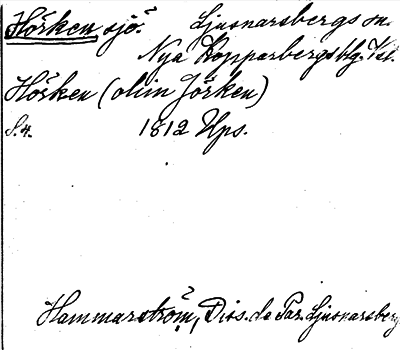 Hörken sjö? Ljusnarsbergs sn.
Nya Kopparbergs blg. Vsl.
Hörken (olim Jörken)
S. 4. 1812 Ups.
Hammarström, Diss. de Par. Ljusnarsberg